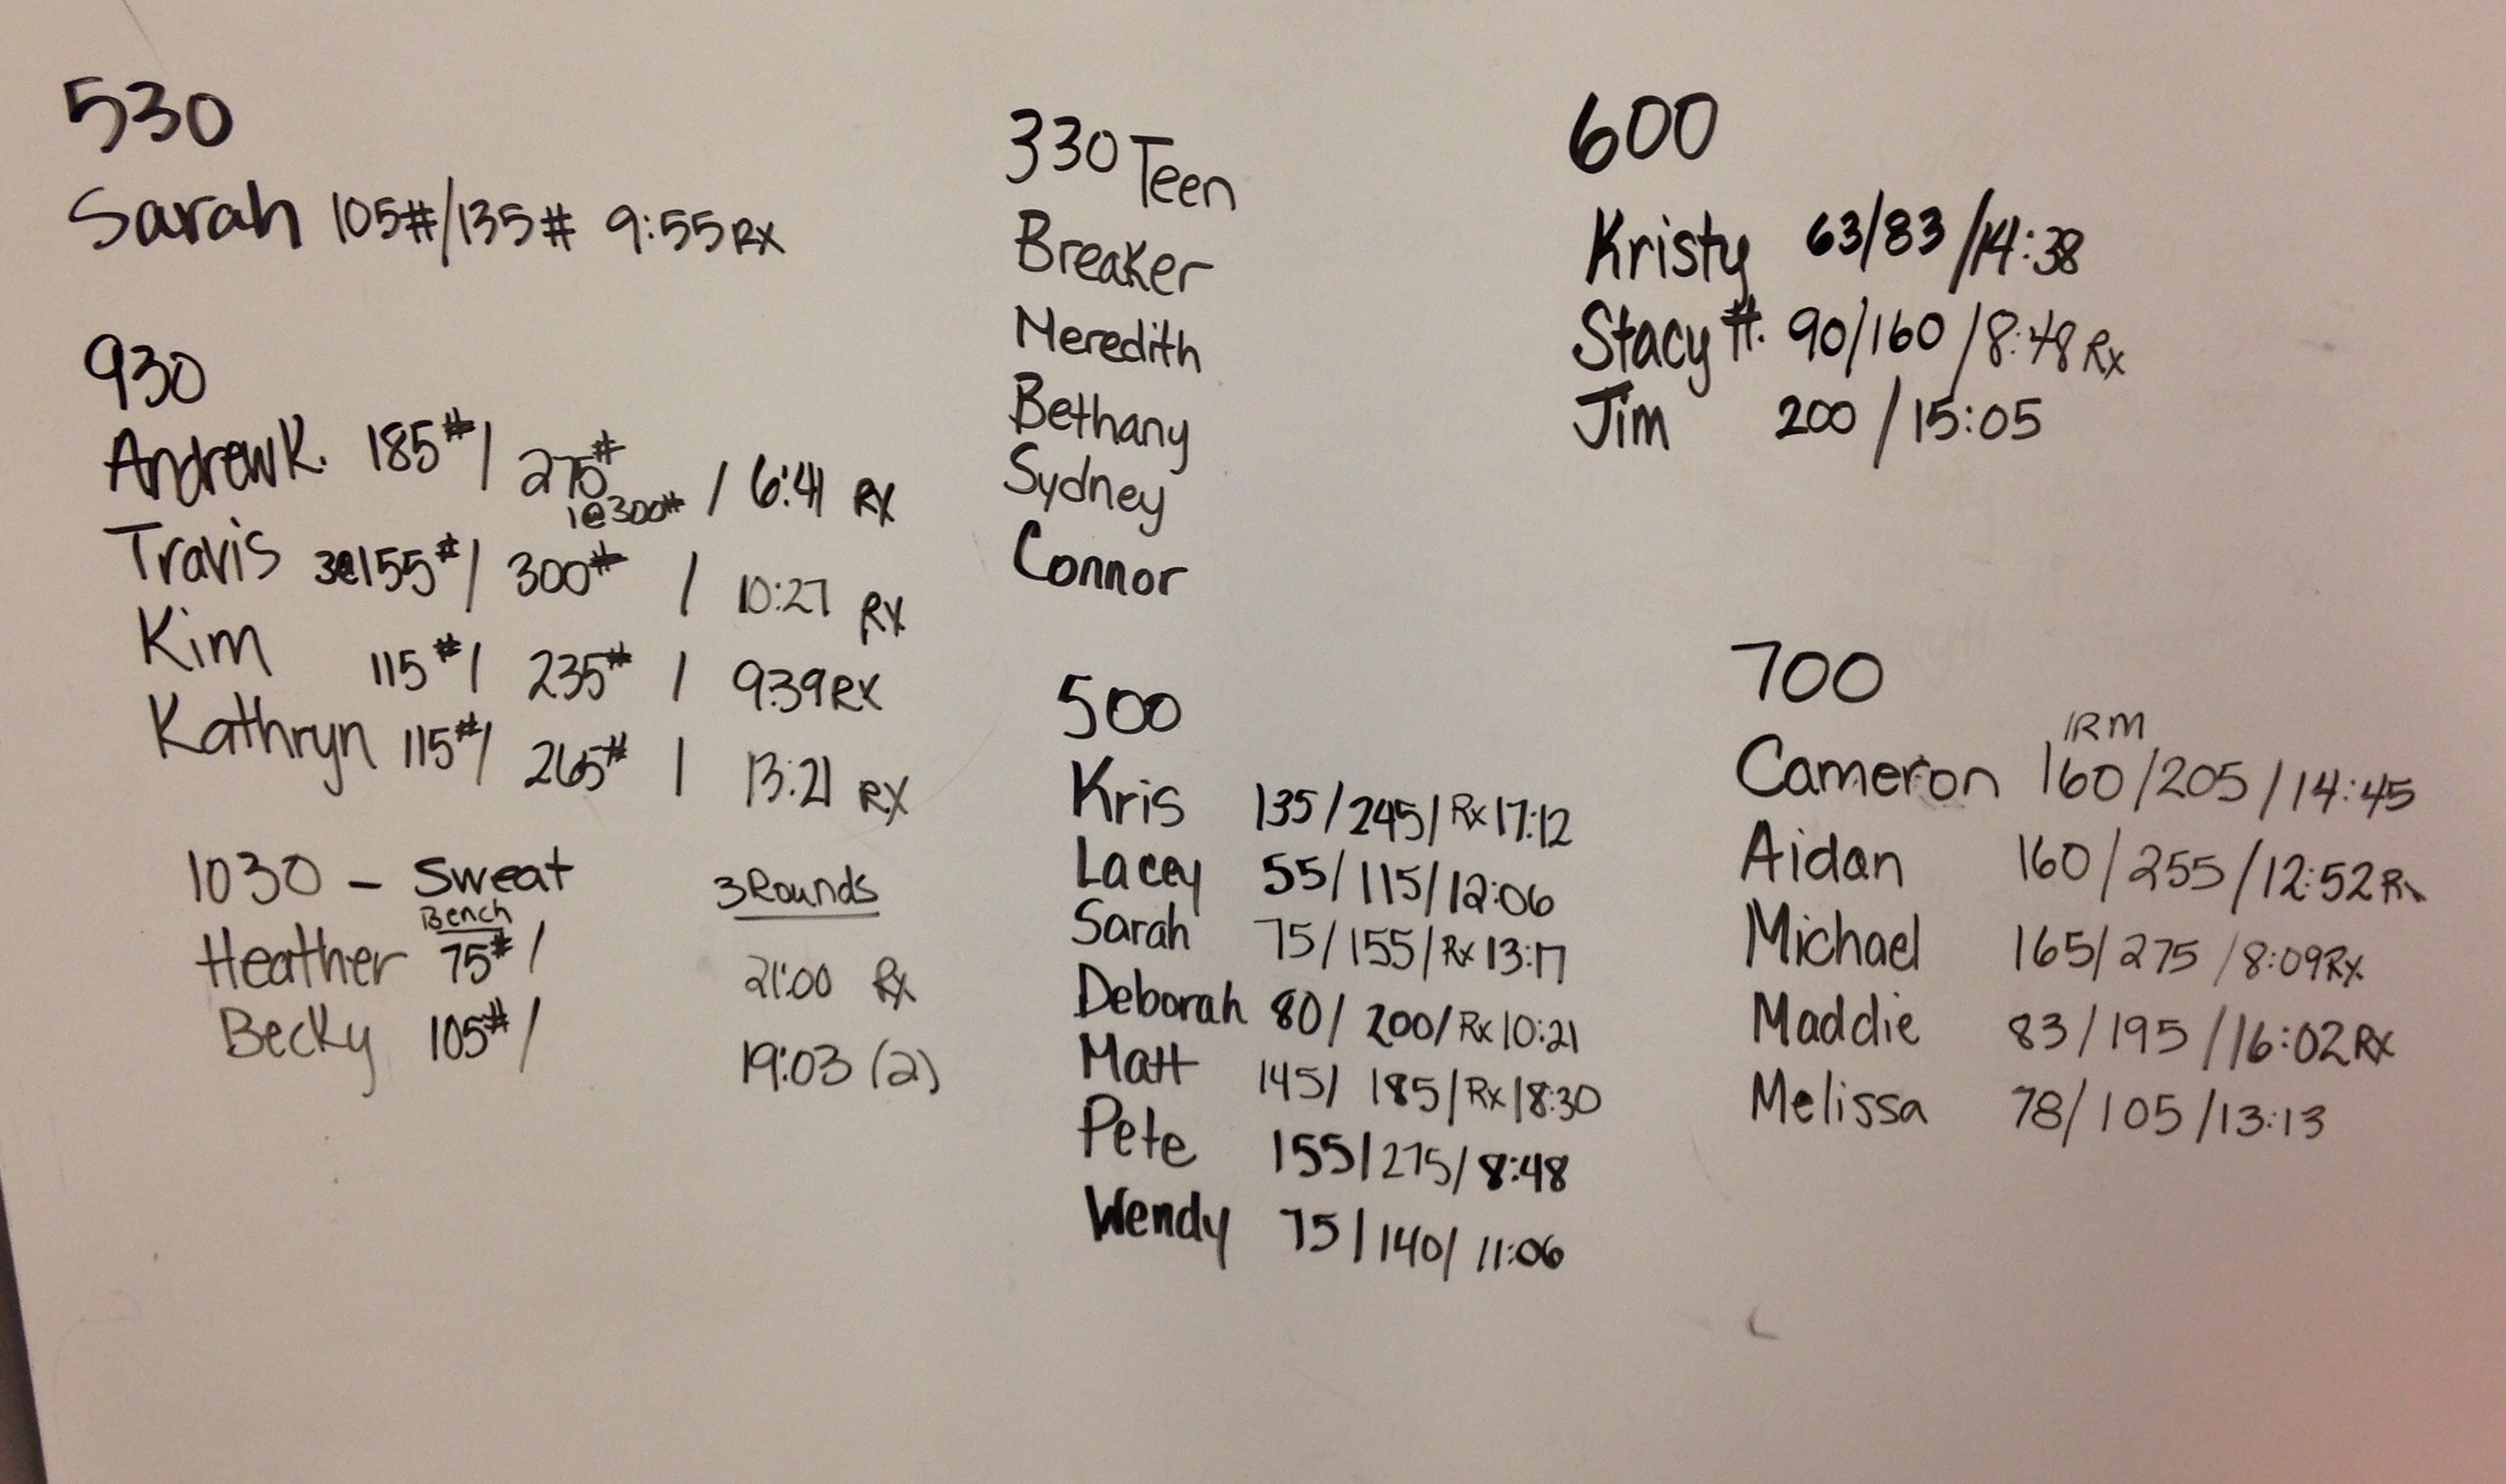 530
Sarah 105#/135# 9:55 RX
930
Andrew K. 185#/ 275# / 6:41 RX
1@300#
Travis 3@155#/ 300# / 10:27 RX
Kim 115#/ 235# / 9:39 RX
Kathryn 115#/ 265# / 13:21 RX
1030 - Sweat 3 Rounds
Bench
Heather 75#/ 21:00 Rx
Becky 105#/ 19:03 (2)
330 Teen
Breaker
Meredith
Bethany
Sydney
Connor
500
Kris 135/245/Rx 17:12
Lacey 55/115/12:06
Sarah 75/155/Rx 13:17
Deborah 80/ 200/Rx 10:21
Matt 145/ 185/Rx 18:30
Pete 155/275/ 8:48
Wendy 75/140/ 11:06
600
Kristy 63/83/14:38
Stacy H. 90/160/8:48 Rx
Jim 200/15:05
700
1RM
Cameron 160/205/14:45
Aidan 160/255/12:52 Rx
Michael 165/275/8:09 Rx
Maddie 83/195/16:02 RX
Melissa 78/105/13:13